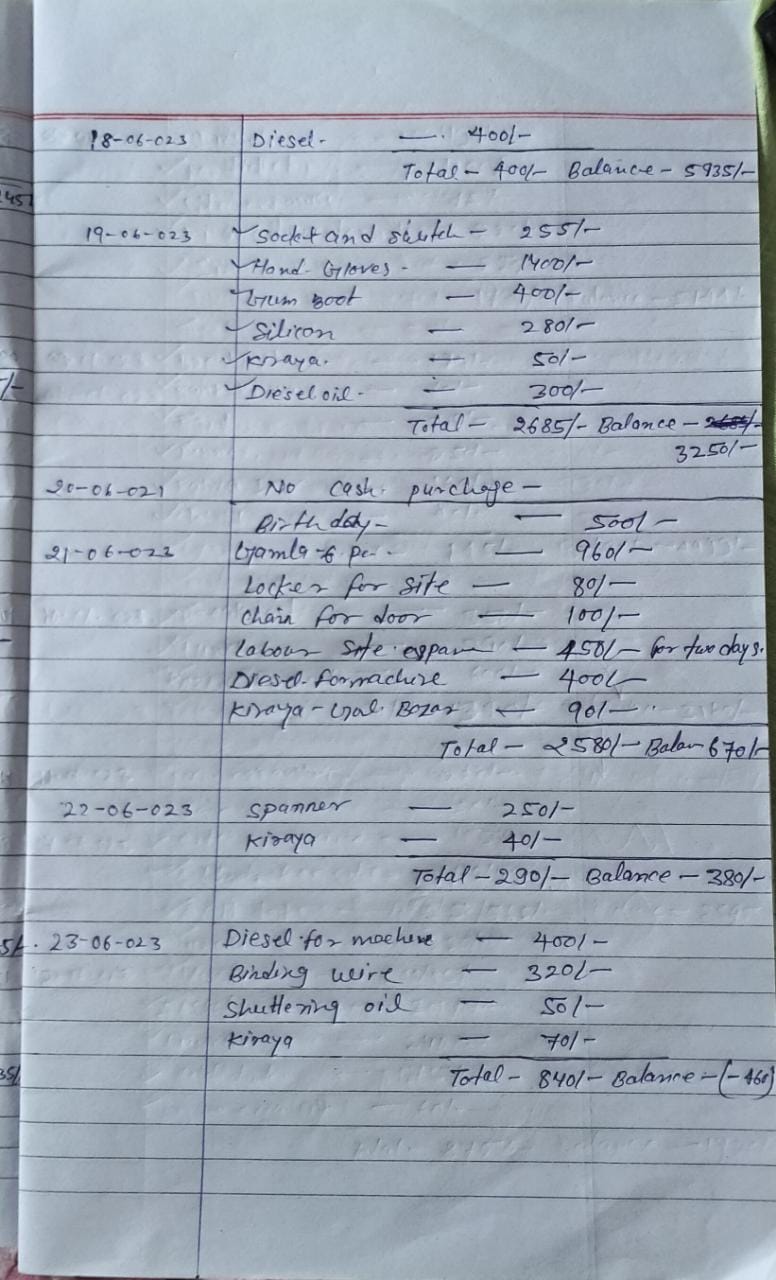 18-06-023 Diesel - — 400/-
Total - 400/- Balance - 5935/-
19-06-023 Socket and switch - 255/-
Hand Gloves - — 1400/-
Gum Boot — 400/-
Silicon — 280/-
Kiraya. — 50/-
Diesel oil - — 300/-
Total - 2685/- Balance -
3250/-
20-06-021 No cash purchage -
Birthday - — 500/-
21-06-023 Gamla 6 Pc - — 960/-
Locker for site — 80/-
Chain for door — 100/-
Labour Site expan — 450/- for two days.
Diesel for machine — 400/-
Kiraya - Gol Bozar — 90/-
Total - 2580/- Balan 670/-
22-06-023 Spanner — 250/-
Kiraya — 40/-
Total - 290/- Balance - 380/-
23-06-023 Diesel for machine — 400/-
Binding wire — 320/-
Shuttering oil — 50/-
Kiraya — 70/-
Total - 840/- Balance - (-460)